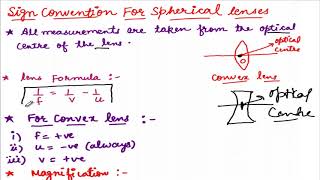 Sign Convention For Spherical lenses
* All measurements are taken from the optical
centre of the lens.
optical
centre
O
Convex lens
* lens Formula :-
1/f = 1/v - 1/u
optical
Centre
* For Convex lens :-
i) f = +ve
ii) u = -ve (always)
iii) v = +ve
* Magnification :-